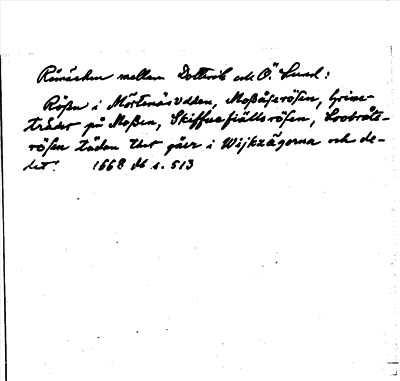 Råmärken mellan Dottevik och Ö. Sund:
Rößen i Mörtenäsudden, Moßåsarösen, Grine-
träder på Moßen, Skiffuefiälls rösen, Lootvåts-
rösen täden thet gåer i Wijkzägorna och de-
let! 1668 db s. 513